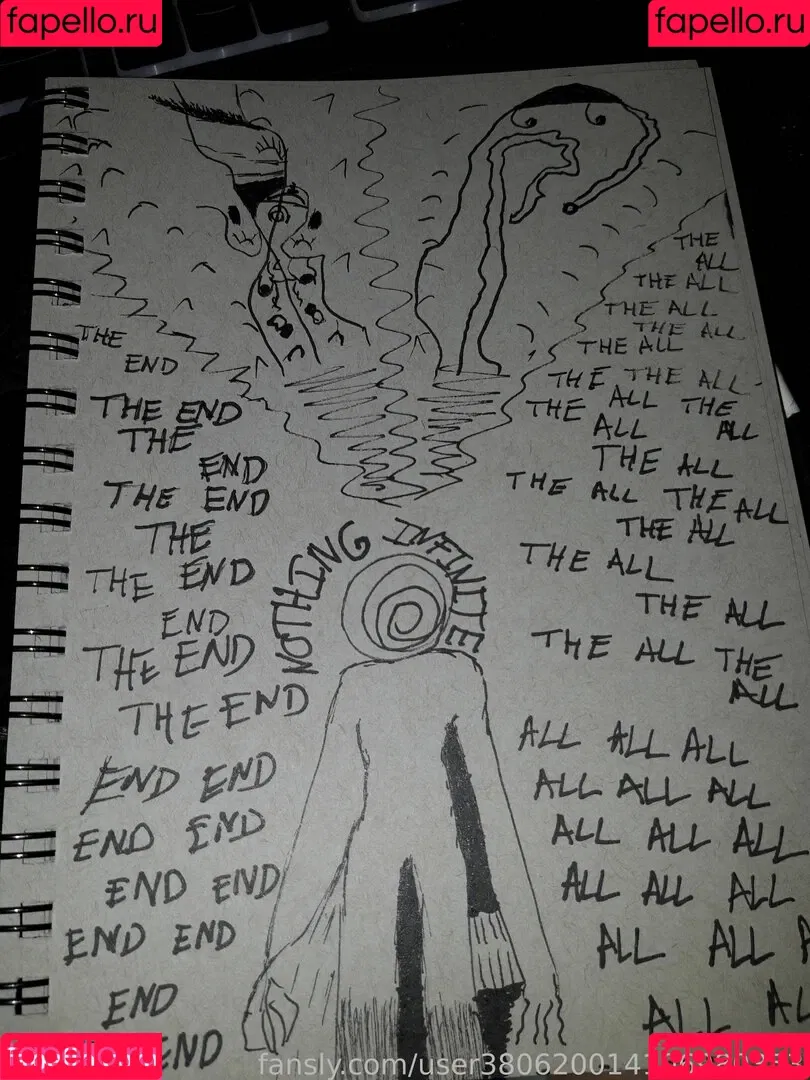 fapello.ru
fapello.ru
THE
END
THE END
THE
END
THE END
THE
THE END
END
THE END
THE END
END END
END END
END END
END END
END
END
NOTHING INFINITE
THE
ALL
THE ALL
THE ALL
THE ALL
THE ALL
THE THE ALL
THE ALL THE
ALL ALL
THE ALL
THE ALL THE ALL
THE ALL
THE ALL
THE ALL
THE ALL THE
ALL
ALL ALL ALL
ALL ALL ALL
ALL ALL ALL
ALL ALL ALL
ALL ALL
ALL
fapello.ru
fansly.com/user380620014
fapello.ru